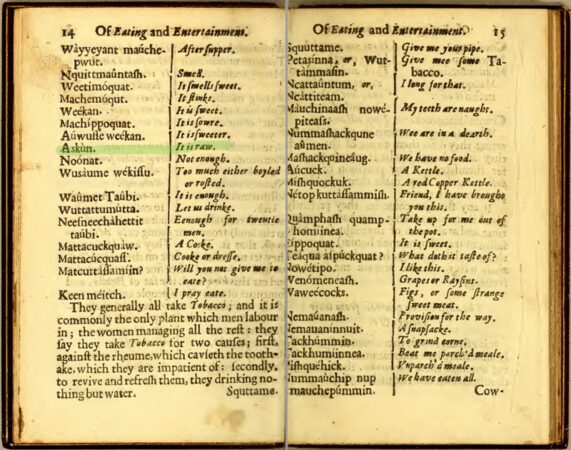 14 Of Eating and Entertainment.
Wàyyeyant maúche- After supper.
pwut.
Nquittmaûntash. Smell.
Weetimóquat. It smells sweet.
Machemóqut. It stinks.
Weékan. It is sweet.
Machíppoquat. It is sowre.
Aúwusse weékan. It is sweeter.
Askùn. It is raw.
Noónat. Not enough.
Wusàume wékissu. Too much either boyled
or rosted.
Waûmet Taûbi. It is enough.
Wuttattumútta. Let us drinke.
Neesneecháhettit Eenough for twentie
taúbi. men.
Mattacuckquàw. A Cooke.
Mattacúcquass. Cooke or dresse.
Matcuttàssamiin? Will you not give me to
eate?
Keen méitch. I pray eate.
They generally all take Tobacco; and it is
commonly the only plant which men labour
in; the women managing all the rest: they
say they take Tobacco for two causes; first,
against the rheume, which causeth the tooth-
ake, which they are impatient of: secondly,
to revive and refresh them, they drinking no-
thing but water. Squttame.
Of Eating and Entertainment. 15
Squuttame. Give me your pipe.
Petasínna, or, Wut- Give mee some Ta-
tàmmasin. bacco.
Ncattaûntum, or, I long for that.
Ncàttiteam.
Màuchinaash nowé- My teeth are naught.
piteass.
Nummashackqune Wee are in a dearth.
aûmen.
Mashackquineâug. We have no food.
Aúcuck. A Kettle.
Mishquockuk. A red Copper Kettle.
Nétop kuttàssammish. Friend, I have brought
you this.
Quàmphash quamp- Take up for me out of
homiínea. the pot.
Eippoquat. It is sweet.
Teàqua aspúckquat? What doth it taste of?
Nowétipo. I like this.
Wenómeneash. Grapes or Raysins.
Waweécocks. Figs, or some strange
sweet meat.
Nemaúanash. Provision for the way.
Nemauanínnuit. A snapsacke.
Tackhúmmin. To grind corne.
Tackhumiínnea. Beat me parch'd meale.
Pishquéhick. Unparch'd meale.
Nummaûchip nup We have eaten all.
mauchepúmmin. Cow-